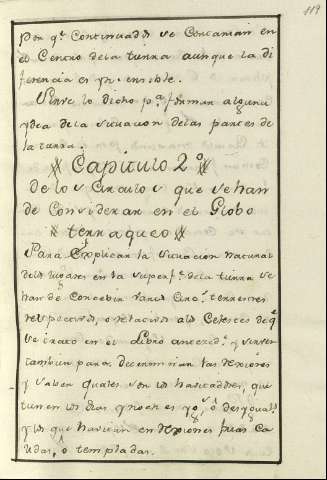 119
Por q.e Continuadas se Cortarian en
el Centro dela tierra aunque la di
ferencia es yn.ensible.
Sirve lo dicho p.a formar alguna
ydea de la situacion delas partes de
la tierra.
Capitulo 2.o
De los Circulos que se han
de Considerar en el Globo
terraqueo
Para Explicar la situacion natural
delos lugares en la superf.e dela tierra se
han de Concebir varios Circ.s terrestres
respectivos, o relativos alos Celestes de q.e
se trato en el Libro anteced.e y sirven
tambien para determinar las Regiones
y saber quales son los havitadores, que
tienen los dias y noches yg.s, ô desygual.s
y los que havitan en Regiones frias Ca
lidas, ô templadas.